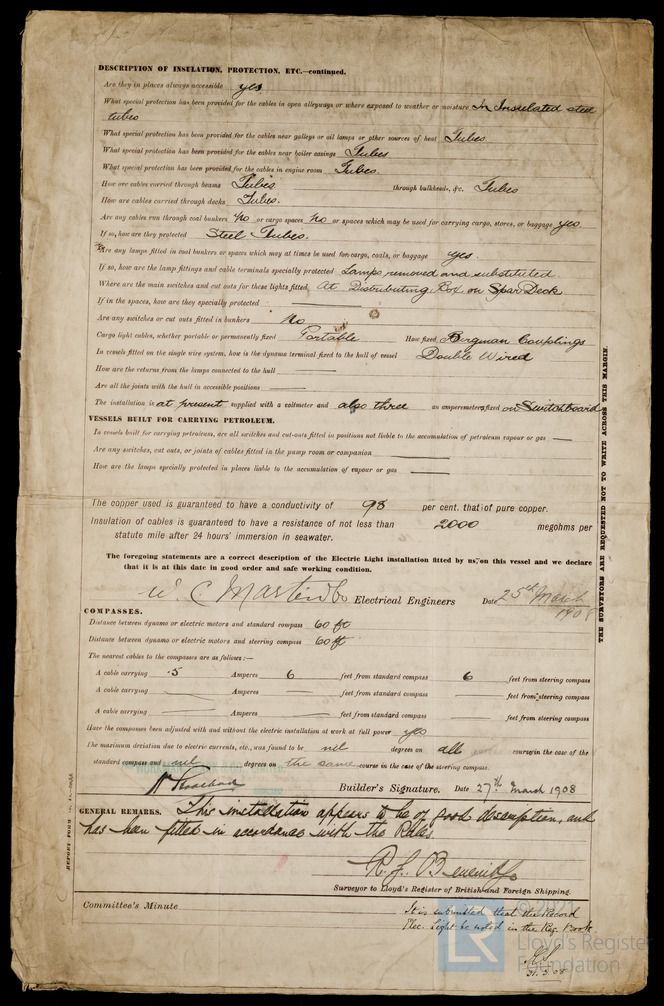 DESCRIPTION OF INSULATION, PROTECTION, ETC.—continued.
Are they in places always accessible yes
What special protection has been provided for the cables in open alleyways or where exposed to weather or moisture In Insulated steel
tubes
What special protection has been provided for the cables near galleys or oil lamps or other sources of heat Tubes
What special protection has been provided for the cables near boiler casings Tubes
What special protection has been provided for the cables in engine room Tubes.
How are cables carried through beams Tubes. through bulkheads, &c. Tubes
How are cables carried through decks Tubes.
Are any cables run through coal bunkers No or cargo spaces No or spaces which may be used for carrying cargo, stores, or baggage yes
If so, how are they protected Steel Tubes.
Are any lamps fitted in coal bunkers or spaces which may at times be used for cargo, coals, or baggage yes.
If so, how are the lamp fittings and cable terminals specially protected Lamps removed and substituted.
Where are the main switches and cut outs for these lights fitted At Distributing Box on Spar Deck
If in the spaces, how are they specially protected
Are any switches or cut outs fitted in bunkers No
Cargo light cables, whether portable or permanently fixed Portable How fixed Bergman Couplings
In vessels fitted on the single wire system, how is the dynamo terminal fixed to the hull of vessel Double Wired
How are the returns from the lamps connected to the hull
Are all the joints with the hull in accessible positions
The installation is at present supplied with a voltmeter and also three an amperemeters fixed on Switchboard
VESSELS BUILT FOR CARRYING PETROLEUM.
In vessels built for carrying petroleum, are all switches and cut-outs fitted in positions not liable to the accumulation of petroleum vapour or gas
Are any switches, cut outs, or joints of cables fitted in the pump room or companion
How are the lamps specially protected in places liable to the accumulation of vapour or gas
The copper used is guaranteed to have a conductivity of 98 per cent. that of pure copper.
Insulation of cables is guaranteed to have a resistance of not less than 2000 megohms per
statute mile after 24 hours' immersion in seawater.
The foregoing statements are a correct description of the Electric Light installation fitted by us on this vessel and we declare
that it is at this date in good order and safe working condition.
W. C. Martin & Co Electrical Engineers Date 25th March
1908
COMPASSES.
Distance between dynamo or electric motors and standard compass 60 ft
Distance between dynamo or electric motors and steering compass 60 ft
The nearest cables to the compasses are as follows:—
A cable carrying .5 Amperes 6 feet from standard compass 6 feet from steering compass
A cable carrying Amperes feet from standard compass feet from steering compass
A cable carrying Amperes feet from standard compass feet from steering compass
Have the compasses been adjusted with and without the electric installation at work at full power yes
The maximum deviation due to electric currents, etc., was found to be nil degrees on all course in the case of the
standard compass and nil degrees on the same course in the case of the steering compass.
Builder's Signature. Date 27th March 1908
GENERAL REMARKS. This installation appears to be of good description, and
has been fitted in accordance with the Rules.
Surveyor to Lloyd's Register of British and Foreign Shipping.
Committee's Minute
It is submitted that the Record
Elec. Light be noted in the Reg. Book
31.3.08
THE SURVEYORS ARE REQUESTED NOT TO WRITE ACROSS THIS MARGIN.
LR
© 2021
Lloyd's Register
Foundation